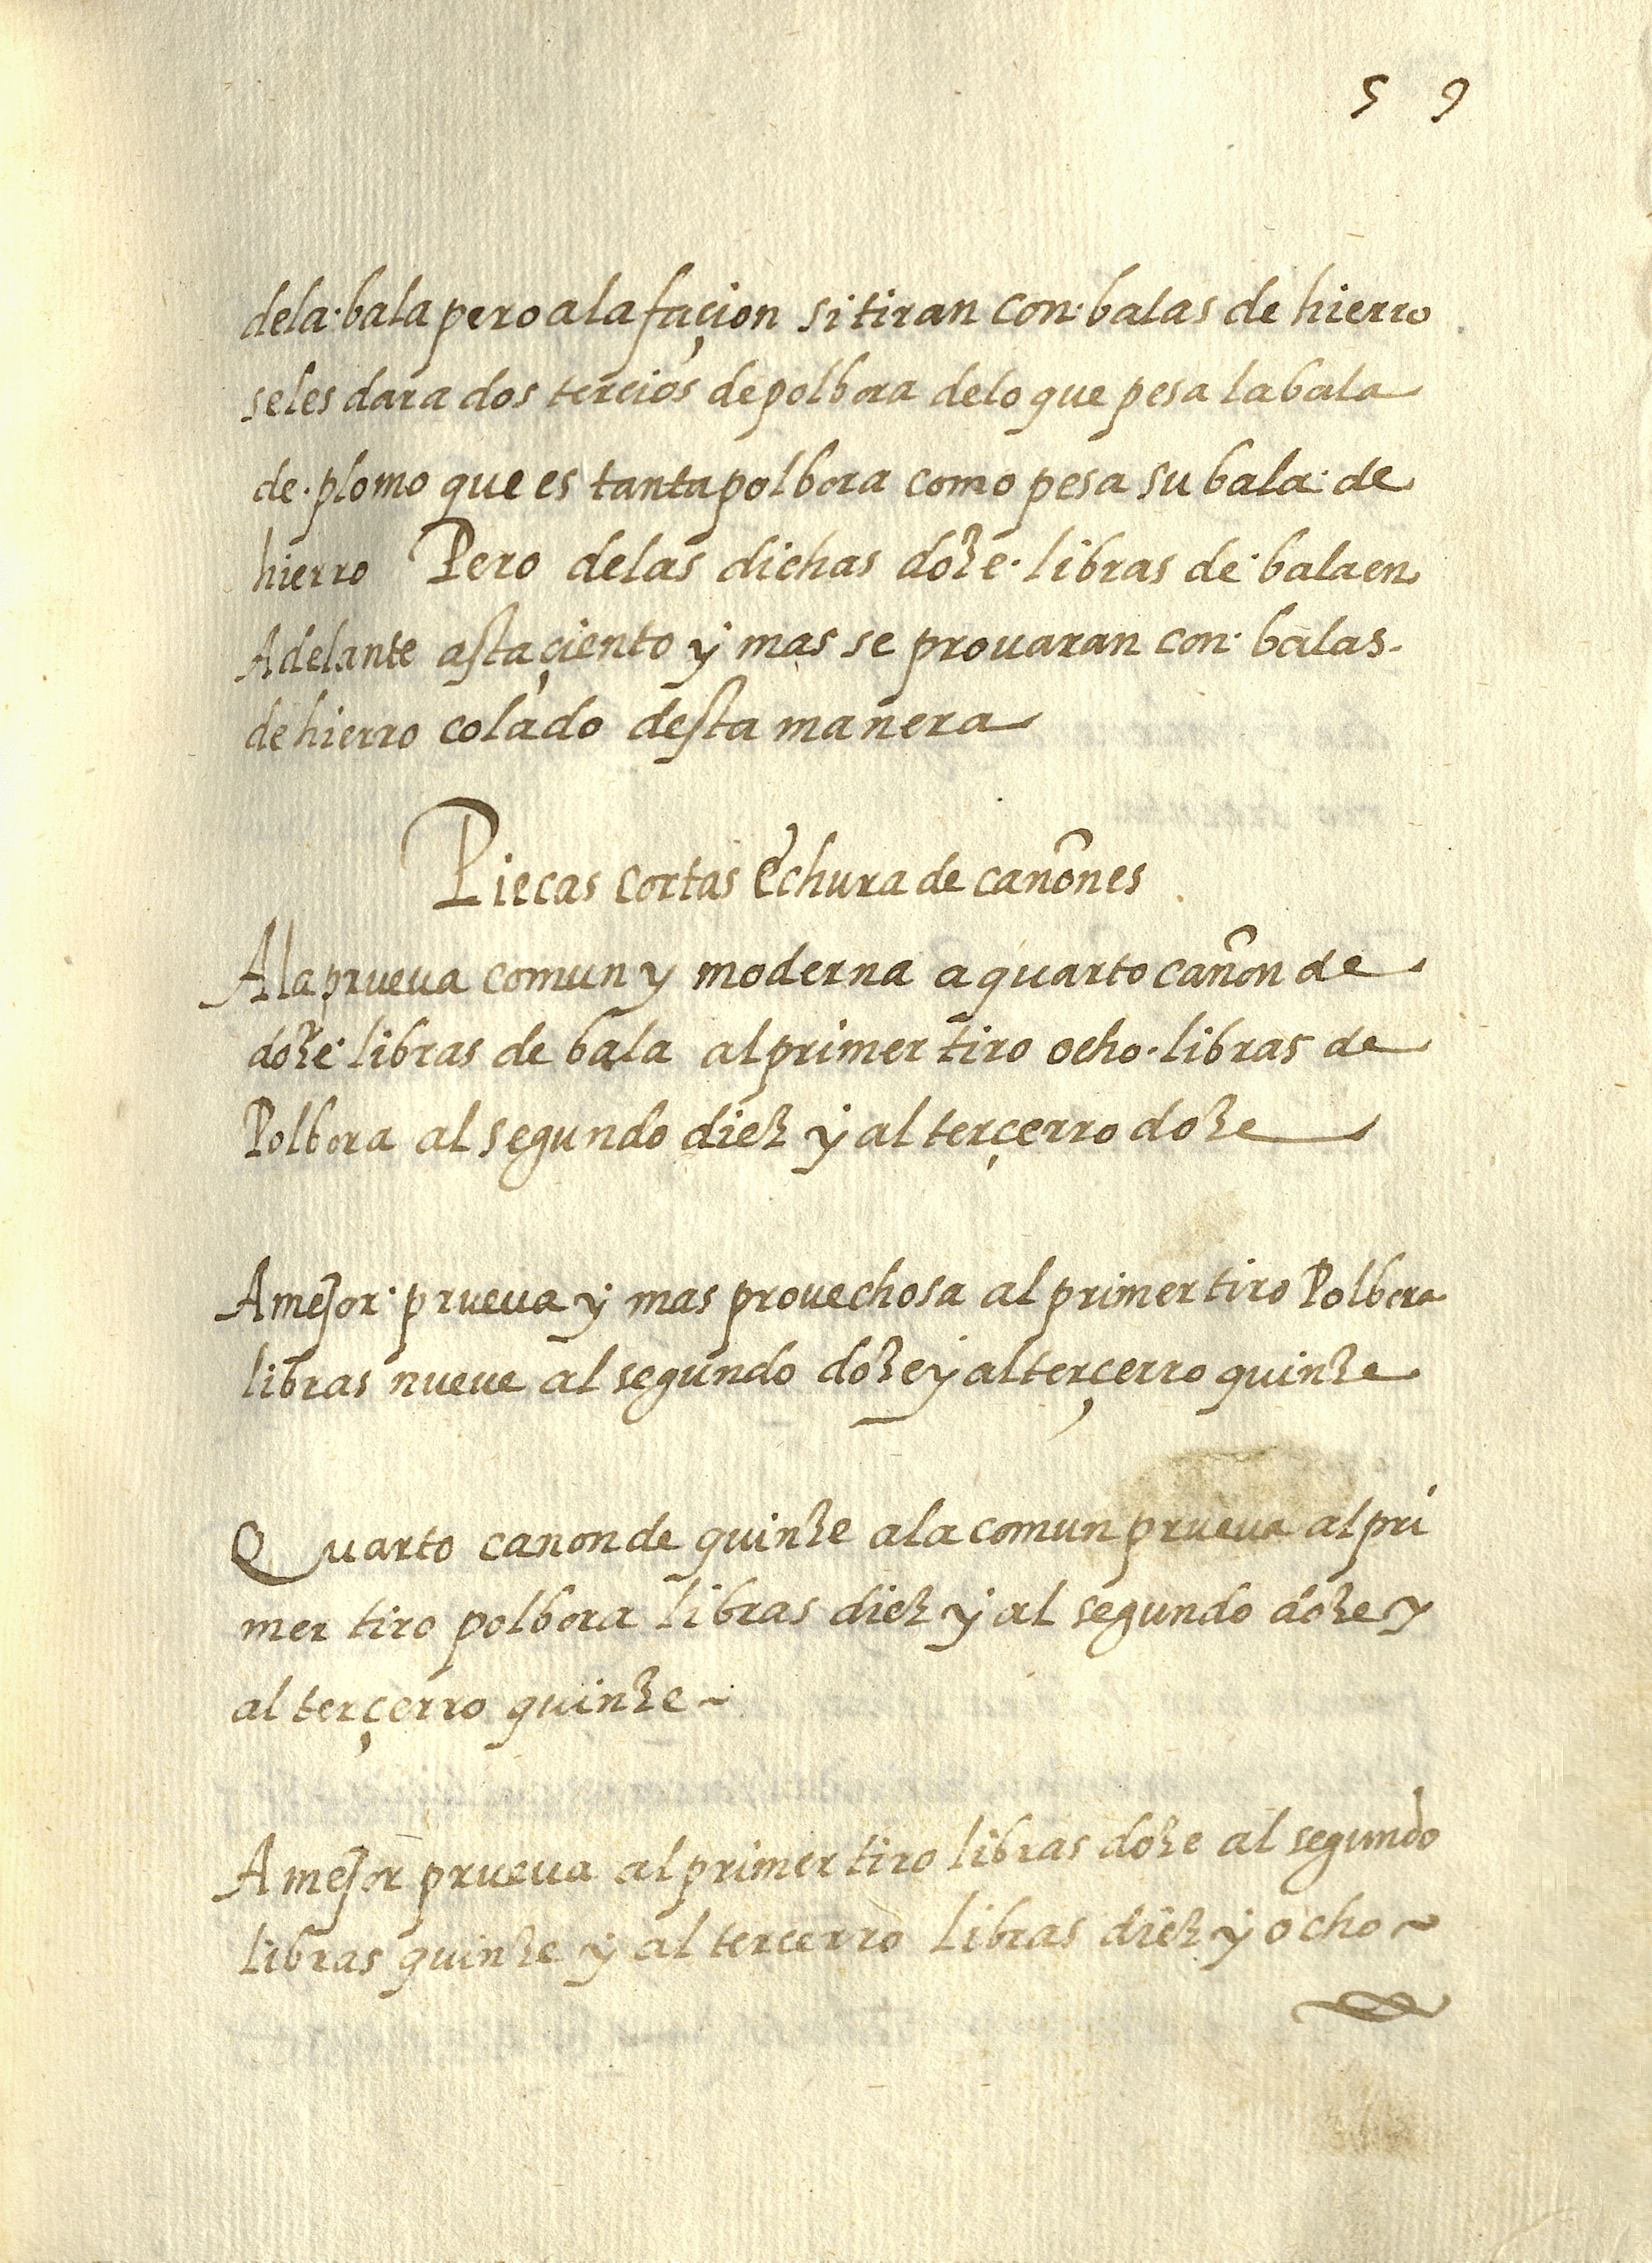 59
dela·bala pero ala façion si tiran con·balas de hierro
seles dara dos tercios depolbora delo que pesa labala
de·plomo que es tantapolbora como pesa su bala· de
hierro Pero delas dichas doze·libras de·balaen
Adelante astaçiento y mas se provaran con·balas.
dehierro colado desta manera
Piecas cortas echura de cañones
Ala prueva comun y moderna aquarto cañon de
doze·libras de bala alprimer tiro ocho·libras de
Polbora al segundo diez y al terçerro doze
Amejor·prueva y mas provechosa al primer tiro Polbora
libras nueve al segundo doze y alterçerro quinze
Quarto canonde quinze ala comun prueva alpri
mer tiro polbora libras diez y al segundo doze y
al terçerro quinze~
Amejor prueva alprimer tiro libras doze al segundo
libras quinze y al tercerro libras diez y ocho~